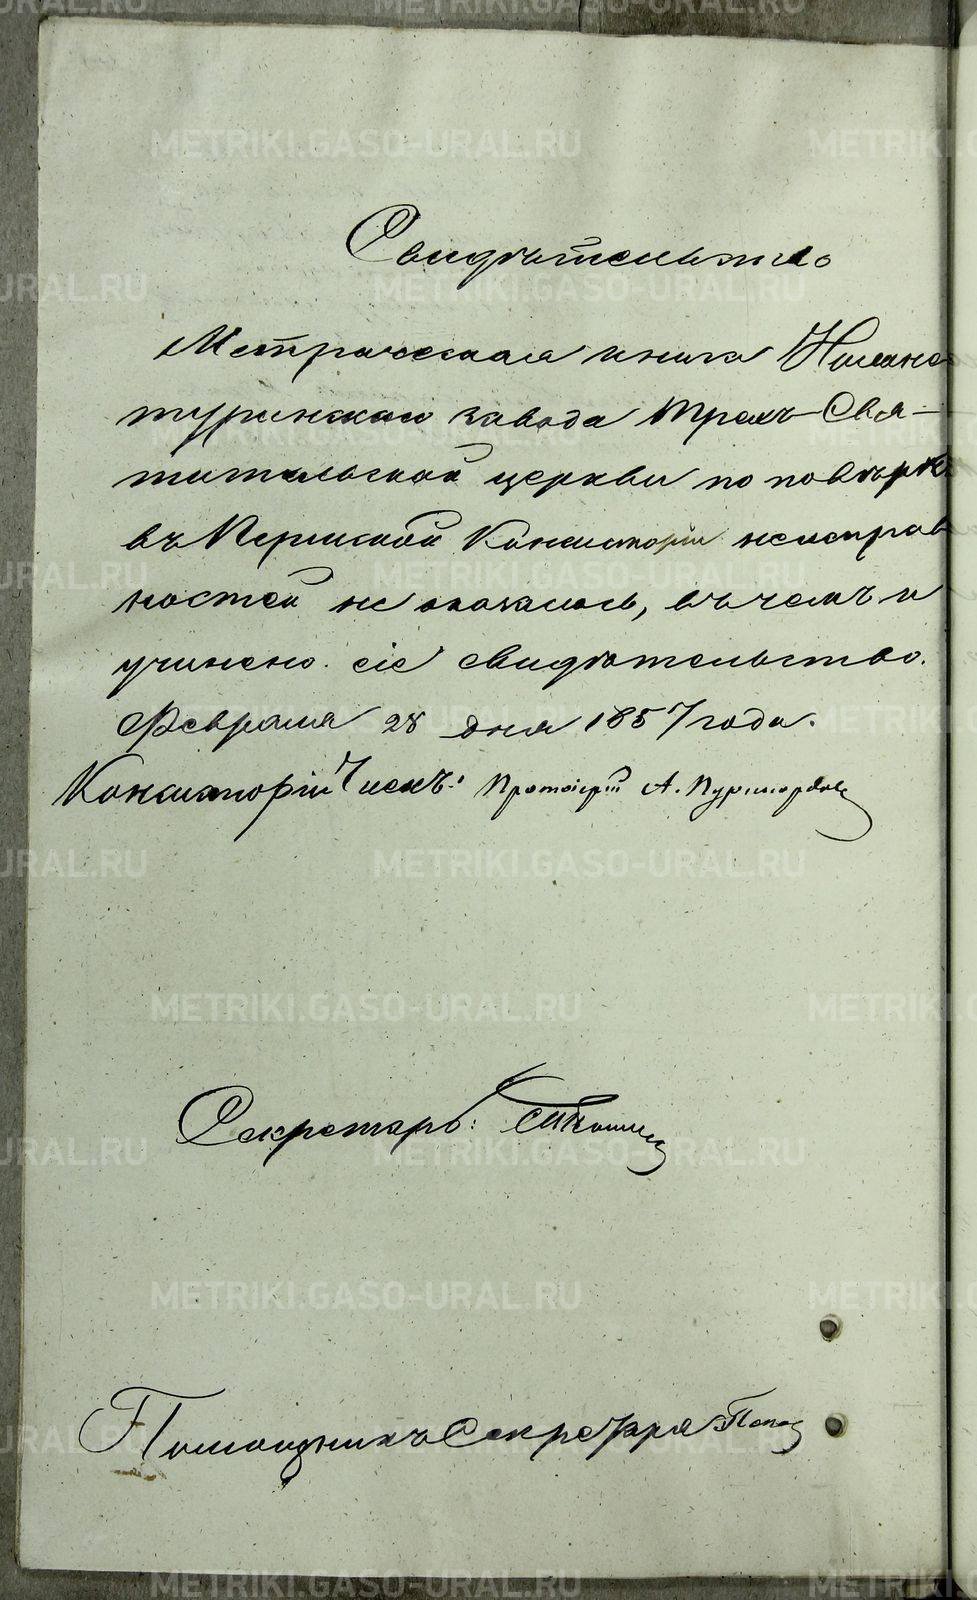 Свидѣтельство
Метрическая книга Нижне
туринскаго завода Трехъ-Свя-
тительской церкви по повѣркѣ
въ Пермской Консисторіи неисправ
ностей не оказалось, въ чемъ и
учинено сіе свидѣтельство.
Февраля 28 дня 1857 года.
Консисторіи Членъ: Протоіерей А.
Секретарь:
Помощникъ Секретаря Попов
METRIKI.GASO-URAL.RU